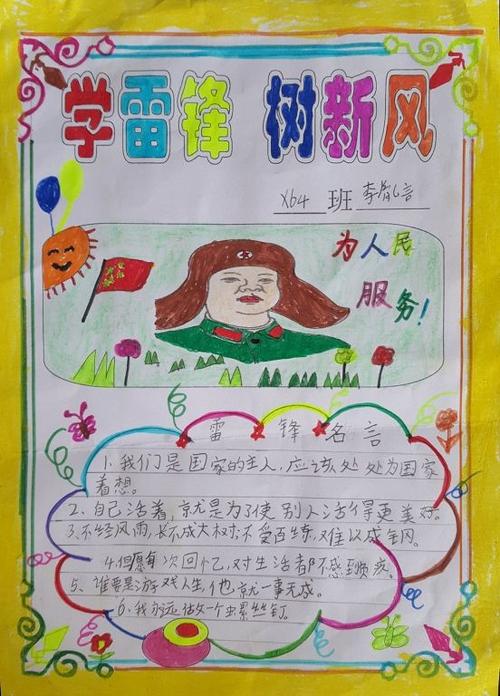 学雷锋 树新风
X64 班 李
为人民
服务!
雷锋名言
1.我们是国家的主人,应该处处为国家
着想。
2、自己活着,就是为了使别人活得更美好。
3、不经风雨,长不成大树,不受百练,难以成钢。
4.但愿每次回忆,对生活都不感到疚。
5、谁要是游戏人生,他就一事无成。
6、我永远做一个螺丝钉。